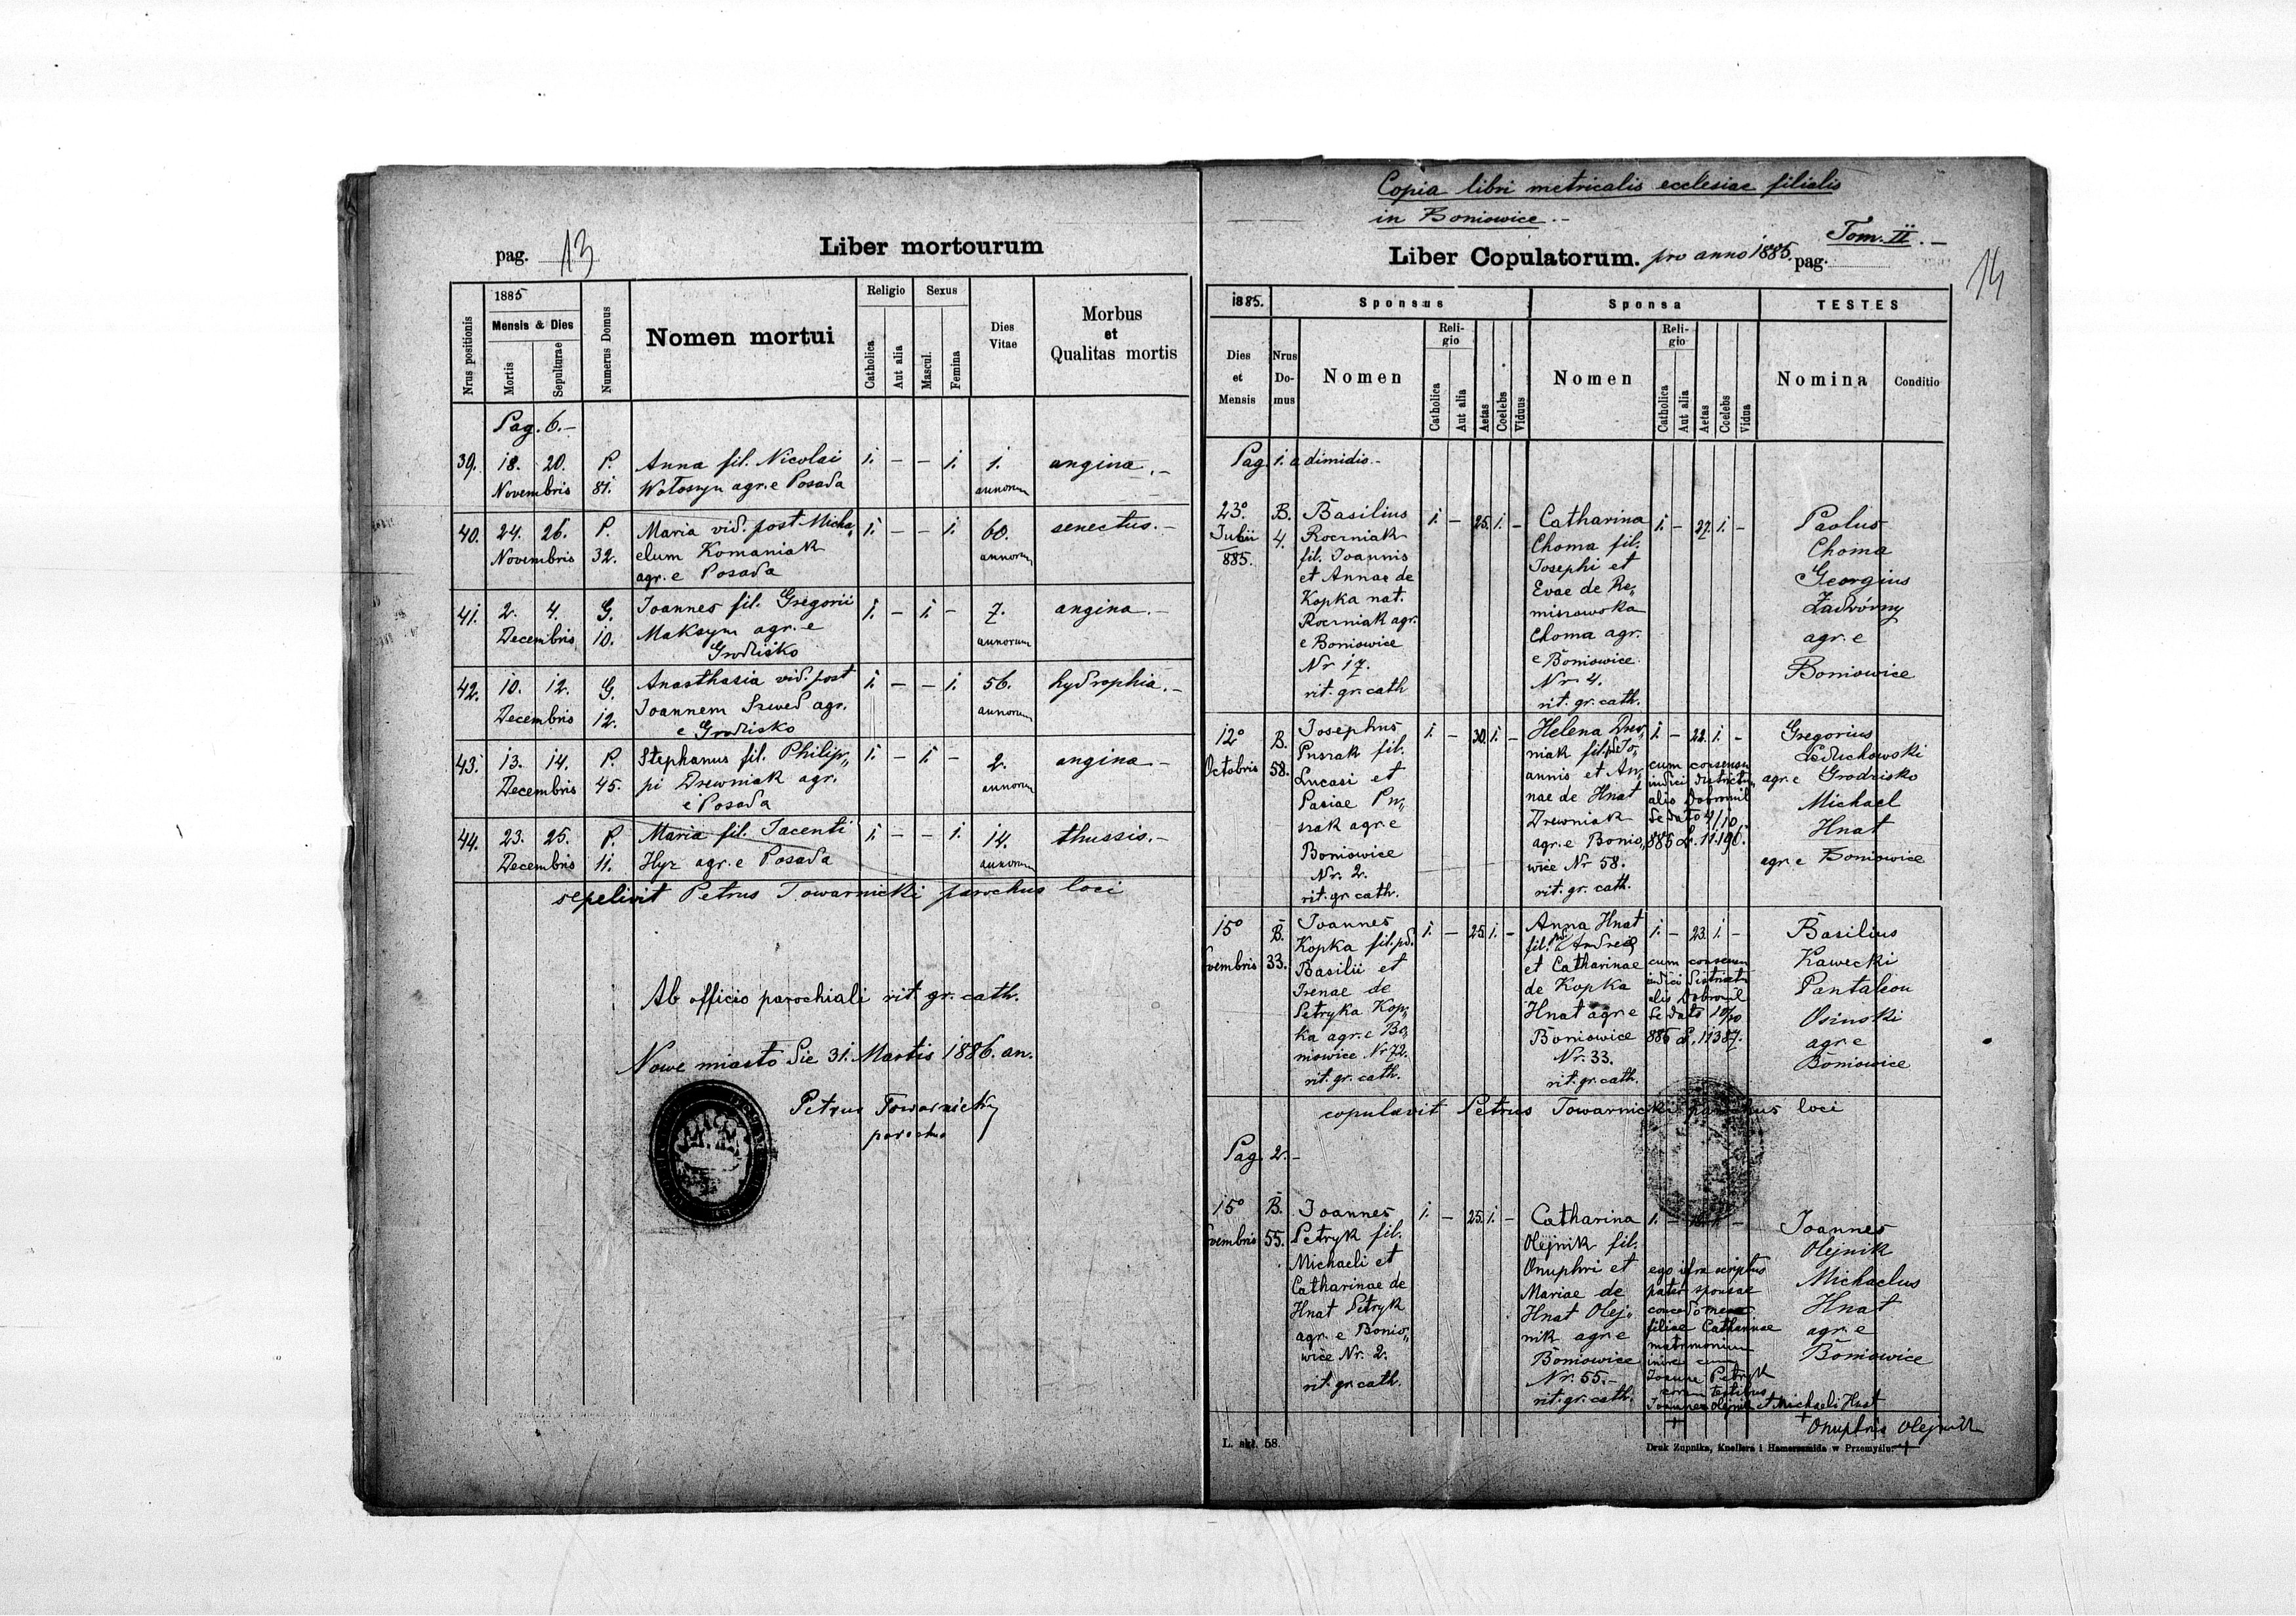 pag. 13
Liber mortourum
Nrus positionis
1885
Mensis & Dies
Mortis
Sepulturae
Numerus Domus
Nomen mortui
Religio
Catholica
Aut alia
Sexus
Mascul.
Femina
Dies
Vitae
Morbus
et
Qualitas mortis
Pag. 6.-
39. 18. 20. P. Anna fil. Nicolai 1. - - 1. 1. angina.-
Novembris 81. Wołoszyn agr. e Posada annorum
40. 24. 26. P. Maria vid. post Micha„ 1. - - 1. 60. senectus.-
Novembris 32. elum Komaniak annorum
agr. e Posada
41. 2. 4. G. Joannes fil. Gregorii 1. - 1. - 7. angina.-
Decembris 10. Maksym agr. e annorum
Grodzisko
42. 10. 12. G. Anasthasia vid. post 1. - - 1. 56. hydrophia.-
Decembris 12. Joannem Szwed agr. annorum
e Grodzisko
43. 13. 14. P. Stephanus fil. Philip„ 1. - 1. - 2. angina-
Decembris 45. pi Drewniak agr. annorum
e Posada
44. 23. 25. P. Maria fil. Jacenti 1. - - 1. 14. thussis.-
Decembris 11. Hyz agr. e Posada annorum
sepelivit Petrus Towarnicki parochus loci
Ab officio parochiali rit. gr. cath.
Nowe miasto Die 31. Martis 1886. an.
Petrus Towarnicky
parochus
Copia libri metricalis ecclesiae filialis
in Boniowice.-
Tom. II.-
Liber Copulatorum. pro anno 1885. pag.
14
1885.
Sponsus
Sponsa
TESTES
Dies
et
Mensis
Nrus
Do-
mus
Nomen
Reli-
gio
Catholica
Aut alia
Aetas
Coelebs
Viduus
Nomen
Reli-
gio
Catholica
Aut alia
Aetas
Coelebs
Vidua
Nomina
Conditio
Pag. 1. a dimidio.-
23°
Julii
885.
B.
4.
Basilius
Roczniak
fil. Joannis
et Annae de
Kopka nat.
Roczniak agr.
e Boniowice
Nr 17.
rit. gr. cath
1. - 25. 1. -
Catharina
Choma fil.
Josephi et
Evae de Re„
miszowska
Choma agr.
e Boniowice
Nr 4.
rit. gr. cath.
1. - 27. 1. -
Paolus
Choma
Georgius
Zadwórny
agr. e
Boniowice
12°
Octobris
B.
58.
Josephus
Puszak fil.
Lucasi et
Pasiae Pu„
szak agr. e
Boniowice
Nr. 2.
rit. gr. cath.
1. - 30. 1. -
Helena Drew„
niak fil. pd. Jo„
annis et An„
nae de Hnat
Drewniak
agr. e Bonio„
wice Nr 58.
rit. gr. cath.
1. - 22. 1. -
cum consensu
iudici districtu„
alis Dobromil
de dato 4/10
885 L. 11.196.
Gregorius
Leduchowski
agr. e Grodzisko
Michael
Hnat
agr. e Boniowice
15°
vembris
B.
33.
Joannes
Kopka fil. pd.
Basilii et
Irenae de
Petryka Kop„
ka agr. e Bo„
niowice Nr 72.
rit. gr. cath.
1. - 25. 1. -
Anna Hnat
fil. pd. Andreą
et Catharinae
de Kopka
Hnat agr e
Boniowice
Nr. 33.
rit. gr. cath.
1. - 23. 1. -
cum consensu
iudici districtu
alis Dobromil
de dato 10/10
885 L. 11387.
Basilius
Kawecki
Pantaleon
Osinski
agr e
Boniowice
copulavit Petrus Towarnicki parochus loci
Pag. 2.-
15°
vembris
B.
55.
Joannes
Petryk fil.
Michaeli et
Catharinae de
Hnat Petryk
agr. e Bonio„
wice Nr. 2.
rit. gr. cath.
1. - 25. 1. -
Catharina
Olejnik fil.
Onuphri et
Mariae de
Hnat Olej„
nik agr e
Boniowice
Nr. 55.-
rit. gr. cath.
1. - 1. -
ego ifra scriptus
pater sponsae
concedo meae
filiae Catharinae
matrimonium
inire cum
Joanne Petryk
coram testibus
Joannes Olejnik et Michaeli Hnat
+ Onuphris Olejnik
Joannes
Olejnik
Michaelus
Hnat
agr. e
Boniowice
L. skł. 58.
Druk Żupnika, Knollera i Hamerszmida w Przemyślu.